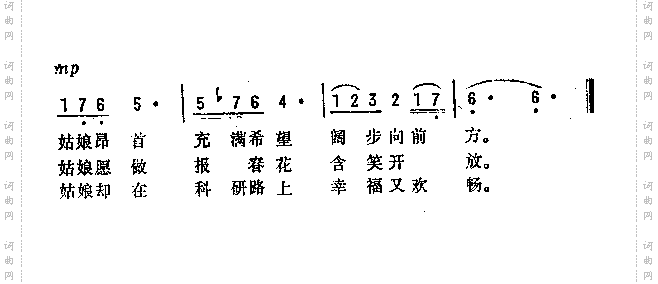 mp
1 7 6 5 · | 5 7 6 4 · | 1 2 3 2 1 7 | 6 · 6 ·
姑娘昂首 充满希望 阔步向前 方。
姑娘愿做 报春花 含笑开 放。
姑娘却在 科研路上 幸福又欢 畅。
词曲网
词曲网
词曲网
词曲网
词曲网
词曲网